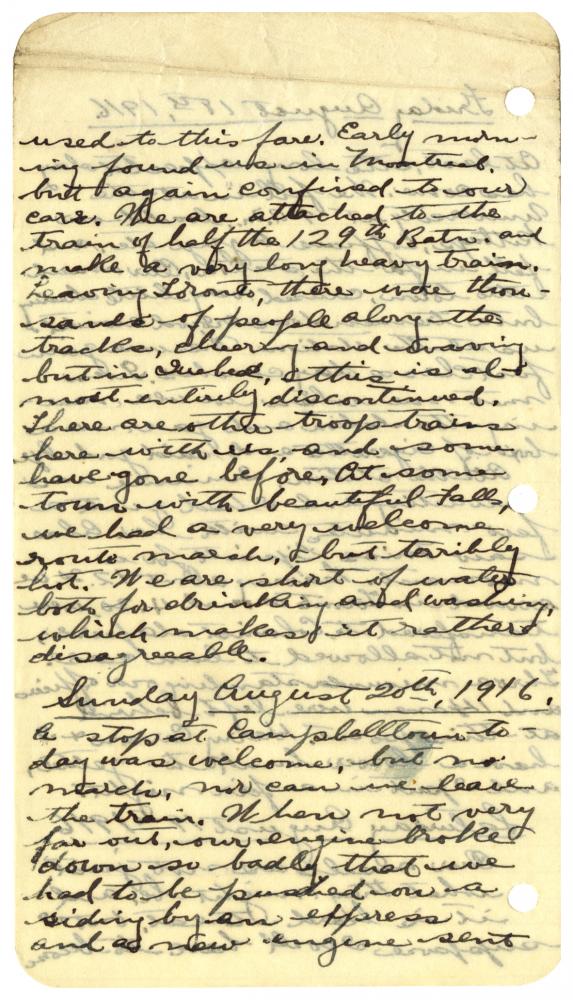 used to this fare. Early morn-
ing found us in Montreal.
but again confined to our
cars. We are attached to the
train of half the 129th Batn. and
make a very long heavy train.
Leaving Toronto, there were thou-
sands of people along the
tracks, cheering and waving
but in Quebec, this is al-
most entirely discontinued.
There are other troop trains
here with us, and some
have gone before. At some
town with beautiful Falls,
we had a very welcome
route march, but terribly
hot. We are short of water
both for drinking and washing,
which makes it rather
disagreeable.
Sunday August 20th, 1916.
A stop at Campbelltown to-
day was welcome, but no
march, nor can we leave
the train. When not very
far out, our engine broke
down so badly that we
had to be pushed on a
siding by an express
and a new engine sent